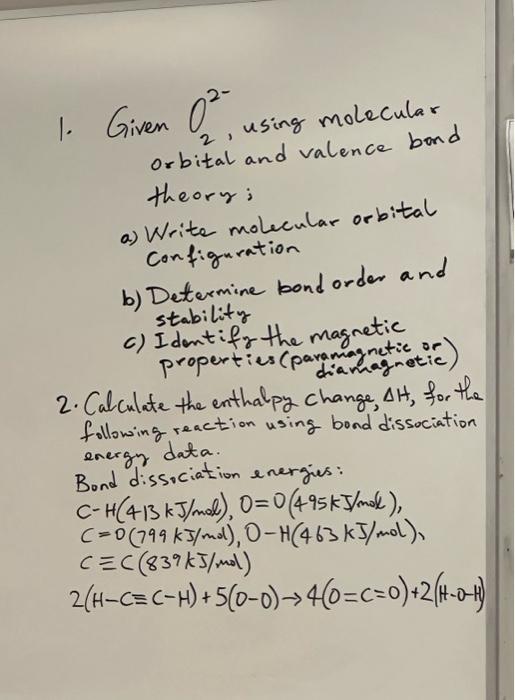 1. Given O₂²⁻, using molecular
orbital and valence bond
theory;
a) Write molecular orbital
configuration
b) Determine bond order and
stability
c) Identify the magnetic
properties (paramagnetic or
diamagnetic)
2. Calculate the enthalpy change, ΔH, for the
following reaction using bond dissociation
energy data.
Bond dissociation energies:
C-H(413 kJ/mol), O=O(495 kJ/mol),
C=O(799 kJ/mol), O-H(463 kJ/mol),
C≡C(839 kJ/mol)
2(H-C≡C-H)+5(O-O)→4(O=C=O)+2(H-O-H)